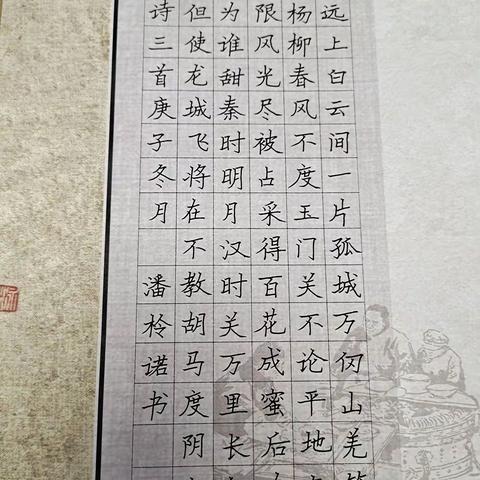 远上白云间一片孤城万仞山羌
杨柳春风不度玉门关不论平地
限风光尽被占采得百花成蜜后
为谁甜秦时明月汉时关万里长
但使龙城飞将在不教胡马度阴
诗三首庚子冬月 潘柃诺书